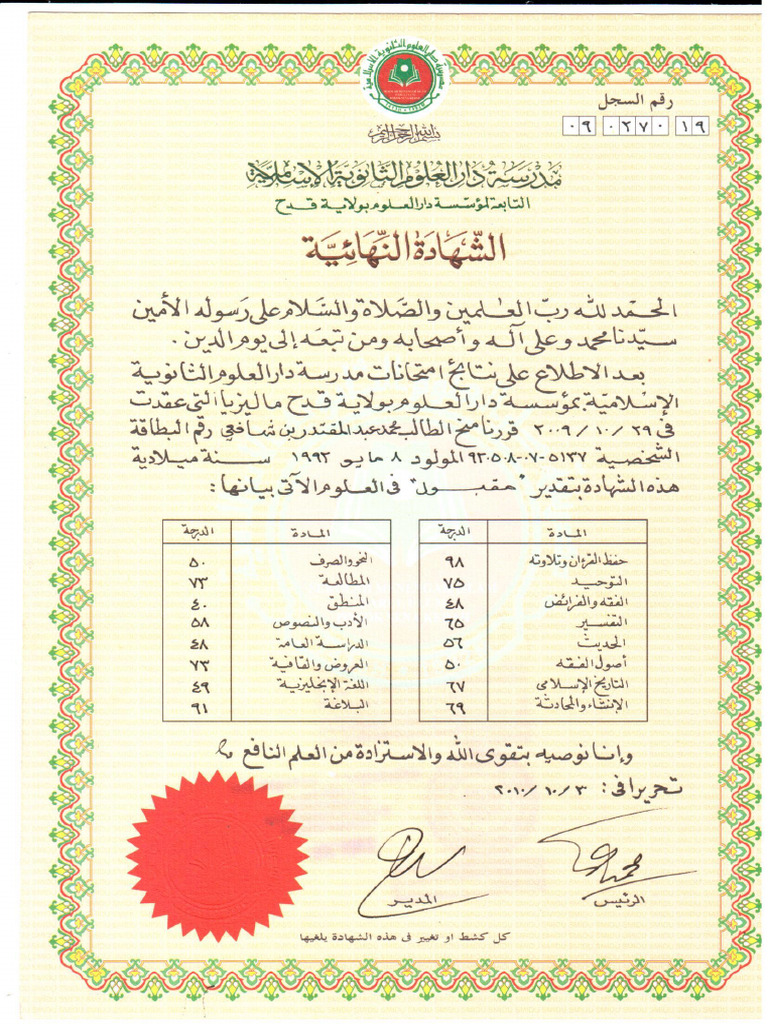 رقم السجل
١٩ ٠٢٧٠ ٠٩
بسم الله الرحمن الرحيم
مدرسة دار العلوم الثانوية الإسلامية
التابعة لمؤسسة دار العلوم بولاية قدح
الشهادة النهائية
الحمد لله رب العالمين والصلاة والسلام على رسوله الأمين
سيدنا محمد وعلى آله وأصحابه ومن تبعه إلى يوم الدين .
بعد الاطلاع على نتائج امتحانات مدرسة دار العلوم الثانوية
الإسلامية بمؤسسة دار العلوم بولاية قدح ماليزيا التي عقدت
فى ٢٩ / ١٠ / ٢٠٠٩ قررنا منح الطالب محمد عبد المقتدر بن شافعي رقم البطاقة
الشخصية ٩٢٠٥٠٨-٠٧-٥١٣٧ المولود ٨ مايو ١٩٩٢ سنة ميلادية
هذه الشهادة بتقدير "مقبول" فى العلوم الآتى بيانها :
المادة الدرجة المادة الدرجة
حفظ القرءان وتلاوته ٩٨ النحو والصرف ٥٠
التوحيد ٧٥ المطالعة ٧٣
الفقه والفرائض ٤٨ المنطق ٤٠
التفسير ٦٥ الأدب والنصوص ٥٨
الحديث ٥٦ الدراسة العامة ٤٨
أصول الفقه ٥٠ العروض والقافية ٧٣
التاريخ الإسلامى ٦٧ اللغة الإنجليزية ٤٩
الإنشاء والمحادثة ٦٩ البلاغة ٩١
وإنا نوصيه بتقوى الله والاستزادة من العلم النافع
تحريرا فى : ٣ / ١٠ / ٢٠١٠
الرئيس المدير
كل كشط او تغيير فى هذه الشهادة يلغيها